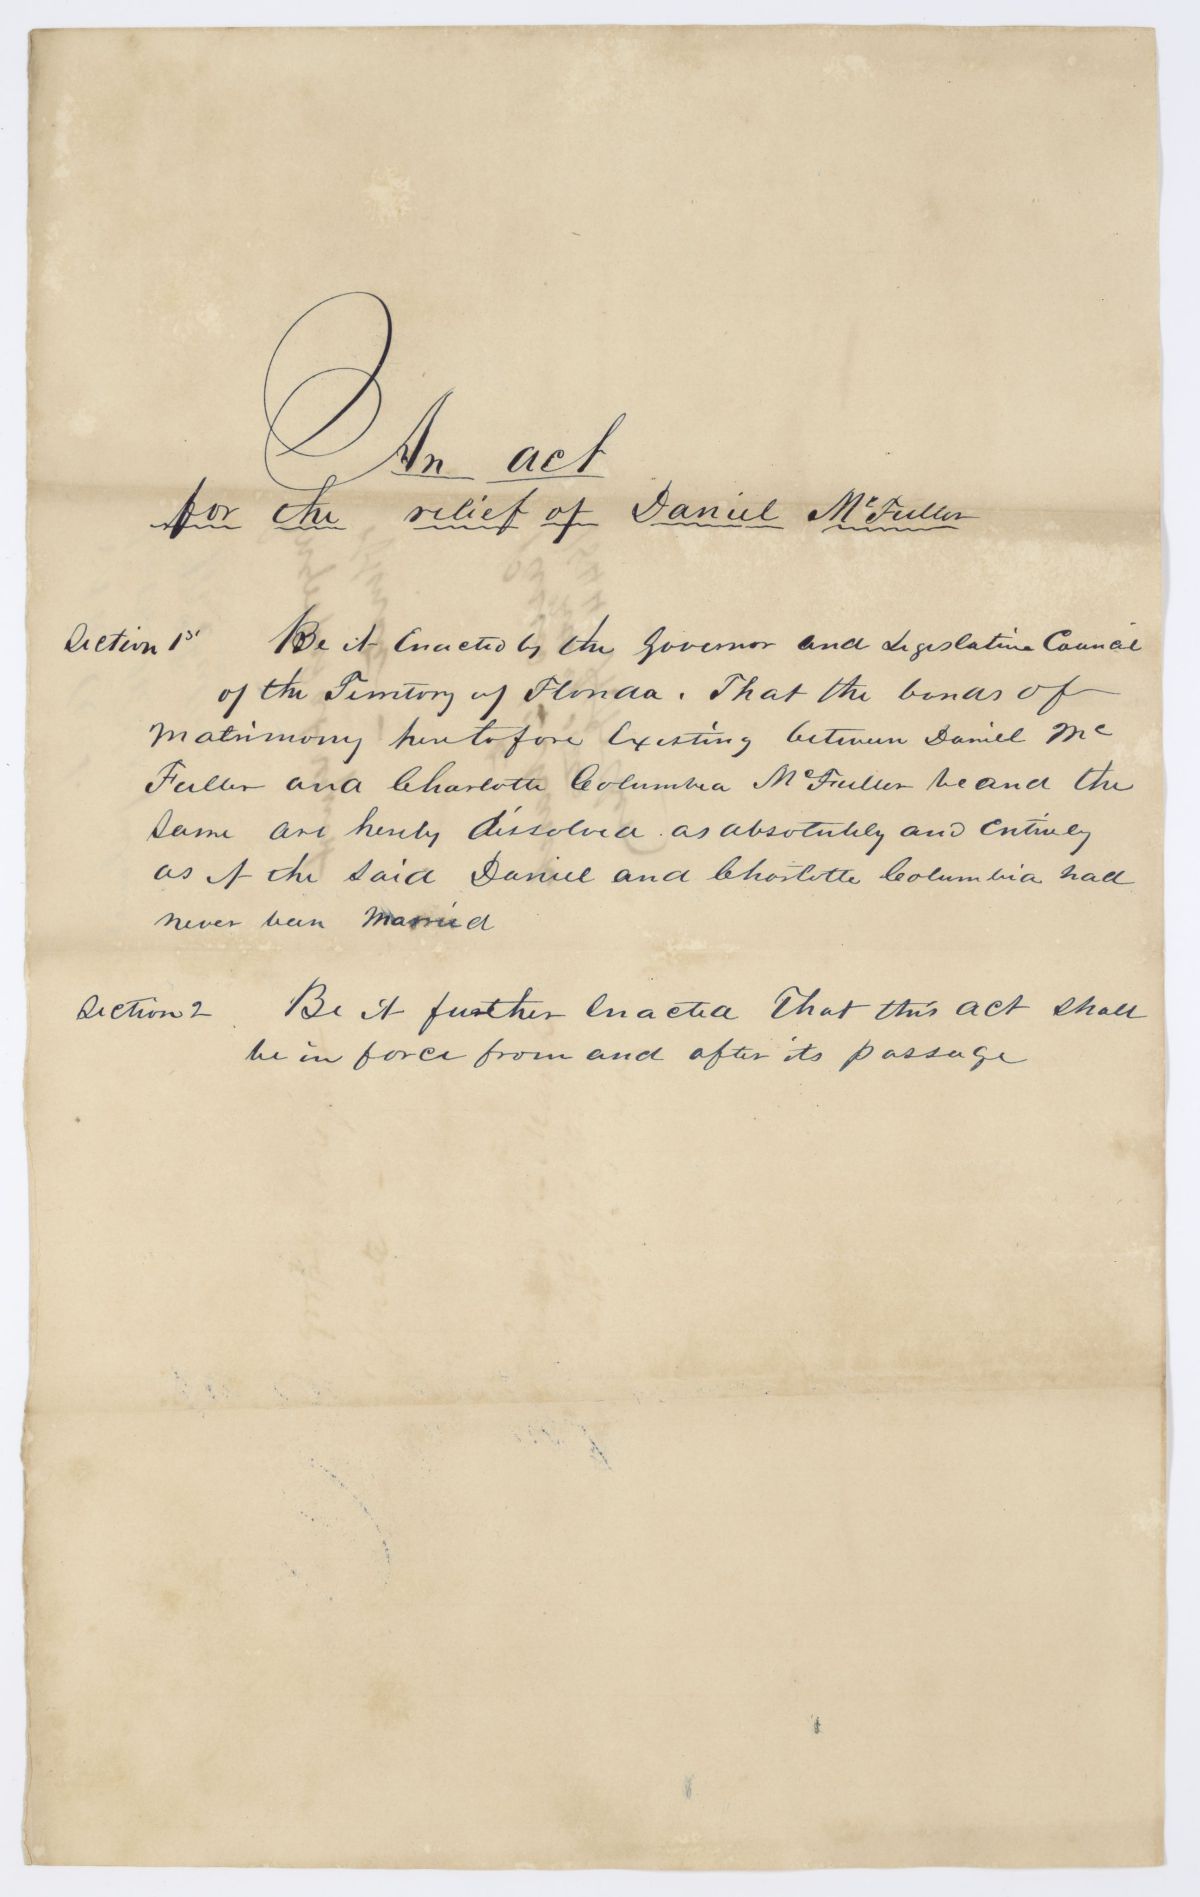 An act
for the relief of Daniel McFuller
Section 1st Be it Enacted by the Governor and Legislative Council
of the Territory of Florida. That the bonds of
Matrimony heretofore Existing between Daniel Mc
Fuller and Charlotte Columbia McFuller be and the
Same are hereby dissolved as absolutely and Entirely
as if the Said Daniel and Charlotte Columbia had
never been Married
Section 2 Be it further Enacted That this act Shall
be in force from and after its passage